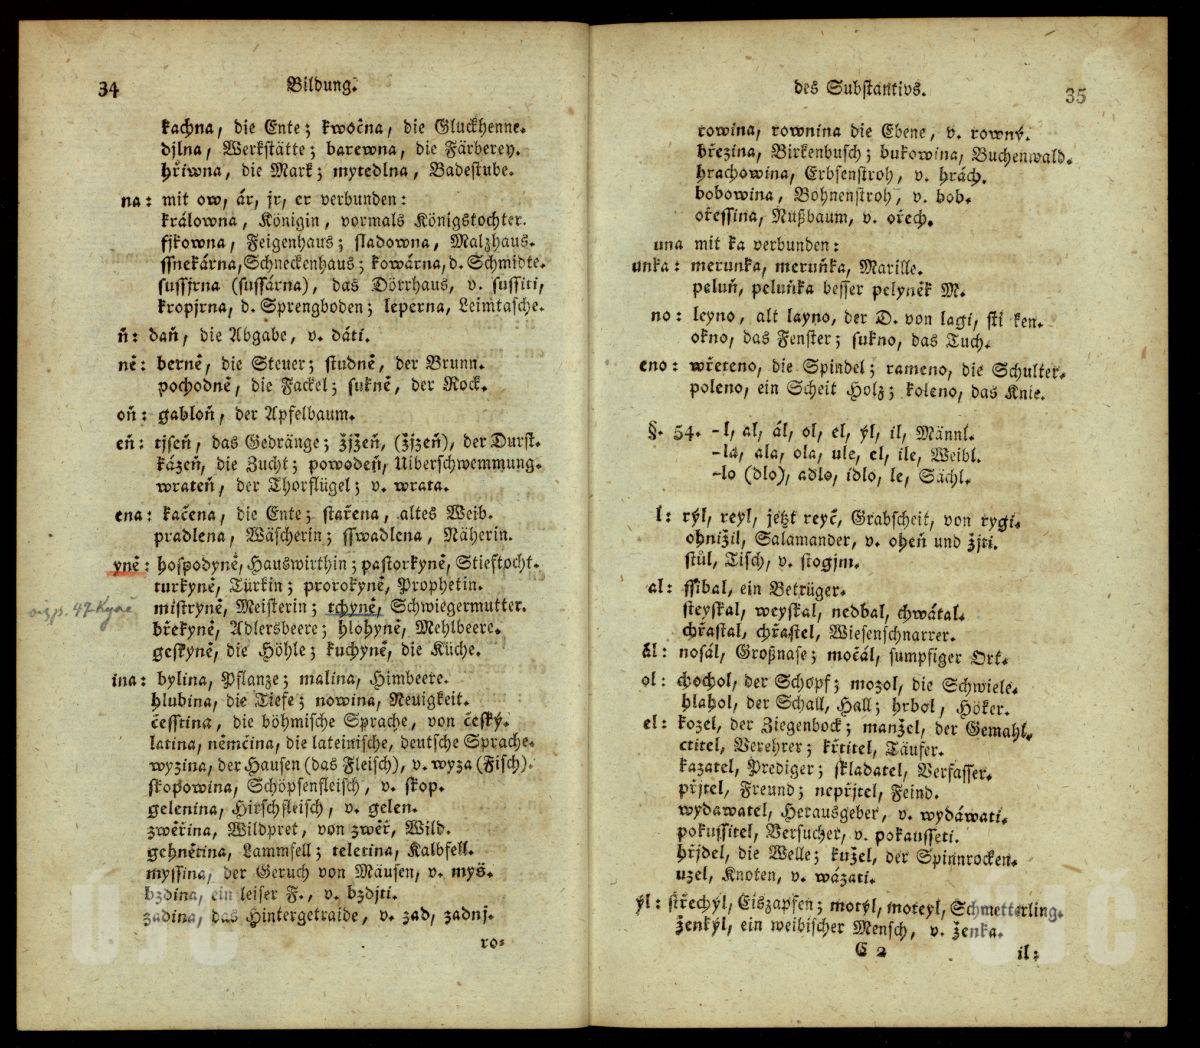 34
Bildung.
kachna, die Ente; kwočna, die Gluckhenne.
djlna, Werkstätte; barewna, die Färberey.
hřiwna, die Mark; mytedlna, Badestube.
na: mit ow, ár, jr, er verbunden:
králowna, Königin, vormals Königstochter.
fjkowna, Feigenhaus; sladowna, Malzhaus.
ssnekárna, Schneckenhaus; kowárna, d. Schmidte.
sussjrna (sussárna), das Dörrhaus, v. sussiti,
kropjrna, d. Sprengboden; leperna, Leimtasche.
ň: daň, die Abgabe, v. dáti.
ně: berně, die Steuer; studně, der Brunn.
pochodně, die Fackel; sukně, der Rock.
oň: gabloň, der Apfelbaum.
eň: tjseň, das Gedränge; žjžeň, (žjzeň), der Durst.
kázeň, die Zucht; powodeň, Uiberschwemmung.
wrateň, der Thorflügel; v. wrata.
ena: kačena, die Ente; stařena, altes Weib.
pradlena, Wäscherin; sswadlena, Näherin.
yně: hospodyně, Hauswirthin; pastorkyně, Stieftocht.
turkyně, Türkin; prorokyně, Prophetin.
mistryně, Meisterin; tchyně, Schwiegermutter.
břekyně, Adlersbeere; hlohyně, Mehlbeere.
geskyně, die Höhle; kuchyně, die Küche.
ina: bylina, Pflanze; malina, Himbeere.
hlubina, die Tiefe; nowina, Neuigkeit.
česstina, die böhmische Sprache, von český.
latina, němčina, die lateinische, deutsche Sprache.
wyzina, der Hausen (das Fleisch), v. wyza (Fisch).
skopowina, Schöpsenfleisch, v. skop.
gelenina, Hirschfleisch, v. gelen.
zwěřina, Wildpret, von zwěř, Wild.
gehnětina, Lammfell; teletina, Kalbfell.
myssina, der Geruch von Mäusen, v. myš.
bzdina, ein leiser F., v. bzdjti.
zadina, das Hintergetraide, v. zad, zadnj.
ro-
des Substantivs.
35
rowina, rownina die Ebene, v. rowný.
březina, Birkenbusch; bukowina, Buchenwald.
hrachowina, Erbsenstroh, v. hrách.
bobowina, Bohnenstroh, v. bob.
ořessina, Nußbaum, v. ořech.
una mit ka verbunden:
unka: merunka, meruňka, Marille.
peluň, peluňka besser pelyněk M.
no: leyno, alt layno, der D. von lagi, sti ken.
okno, das Fenster; sukno, das Tuch.
eno: wřeteno, die Spindel; rameno, die Schulter.
poleno, ein Scheit Holz; koleno, das Knie.
§. 54. -l, al, ál, ol, el, ýl, il, Männl.
-la, ala, ola, ule, el, ile, Weibl.
-lo (dlo), adlo, idlo, le, Sächl.
l: rýl, reyl, jetzt reyč, Grabscheit, von rygi.
ohnižil, Salamander, v. oheň und žjti.
stůl, Tisch, v. stogjm.
al: ssibal, ein Betrüger.
steyskal, weyskal, nedbal, chwátal.
chřastal, chřastel, Wiesenschnarrer.
ál: nosál, Großnase; močál, sumpfiger Ort.
ol: chochol, der Schopf; mozol, die Schwiele.
hlahol, der Schall, Hall; hrbol, Höker.
el: kozel, der Ziegenbock; manžel, der Gemahl.
ctitel, Verehrer; křtitel, Täufer.
kazatel, Prediger; skladatel, Verfasser.
přjtel, Freund; nepřjtel, Feind.
wydawatel, Herausgeber, v. wydáwati.
pokussitel, Versucher, v. pokausseti.
hřjdel, die Welle; kužel, der Spinnrocken.
uzel, Knoten, v. wázati.
ýl: střechýl, Eiszapfen; motýl, moteyl, Schmetterling.
ženkýl, ein weibischer Mensch, v. ženka.
C 2
il: